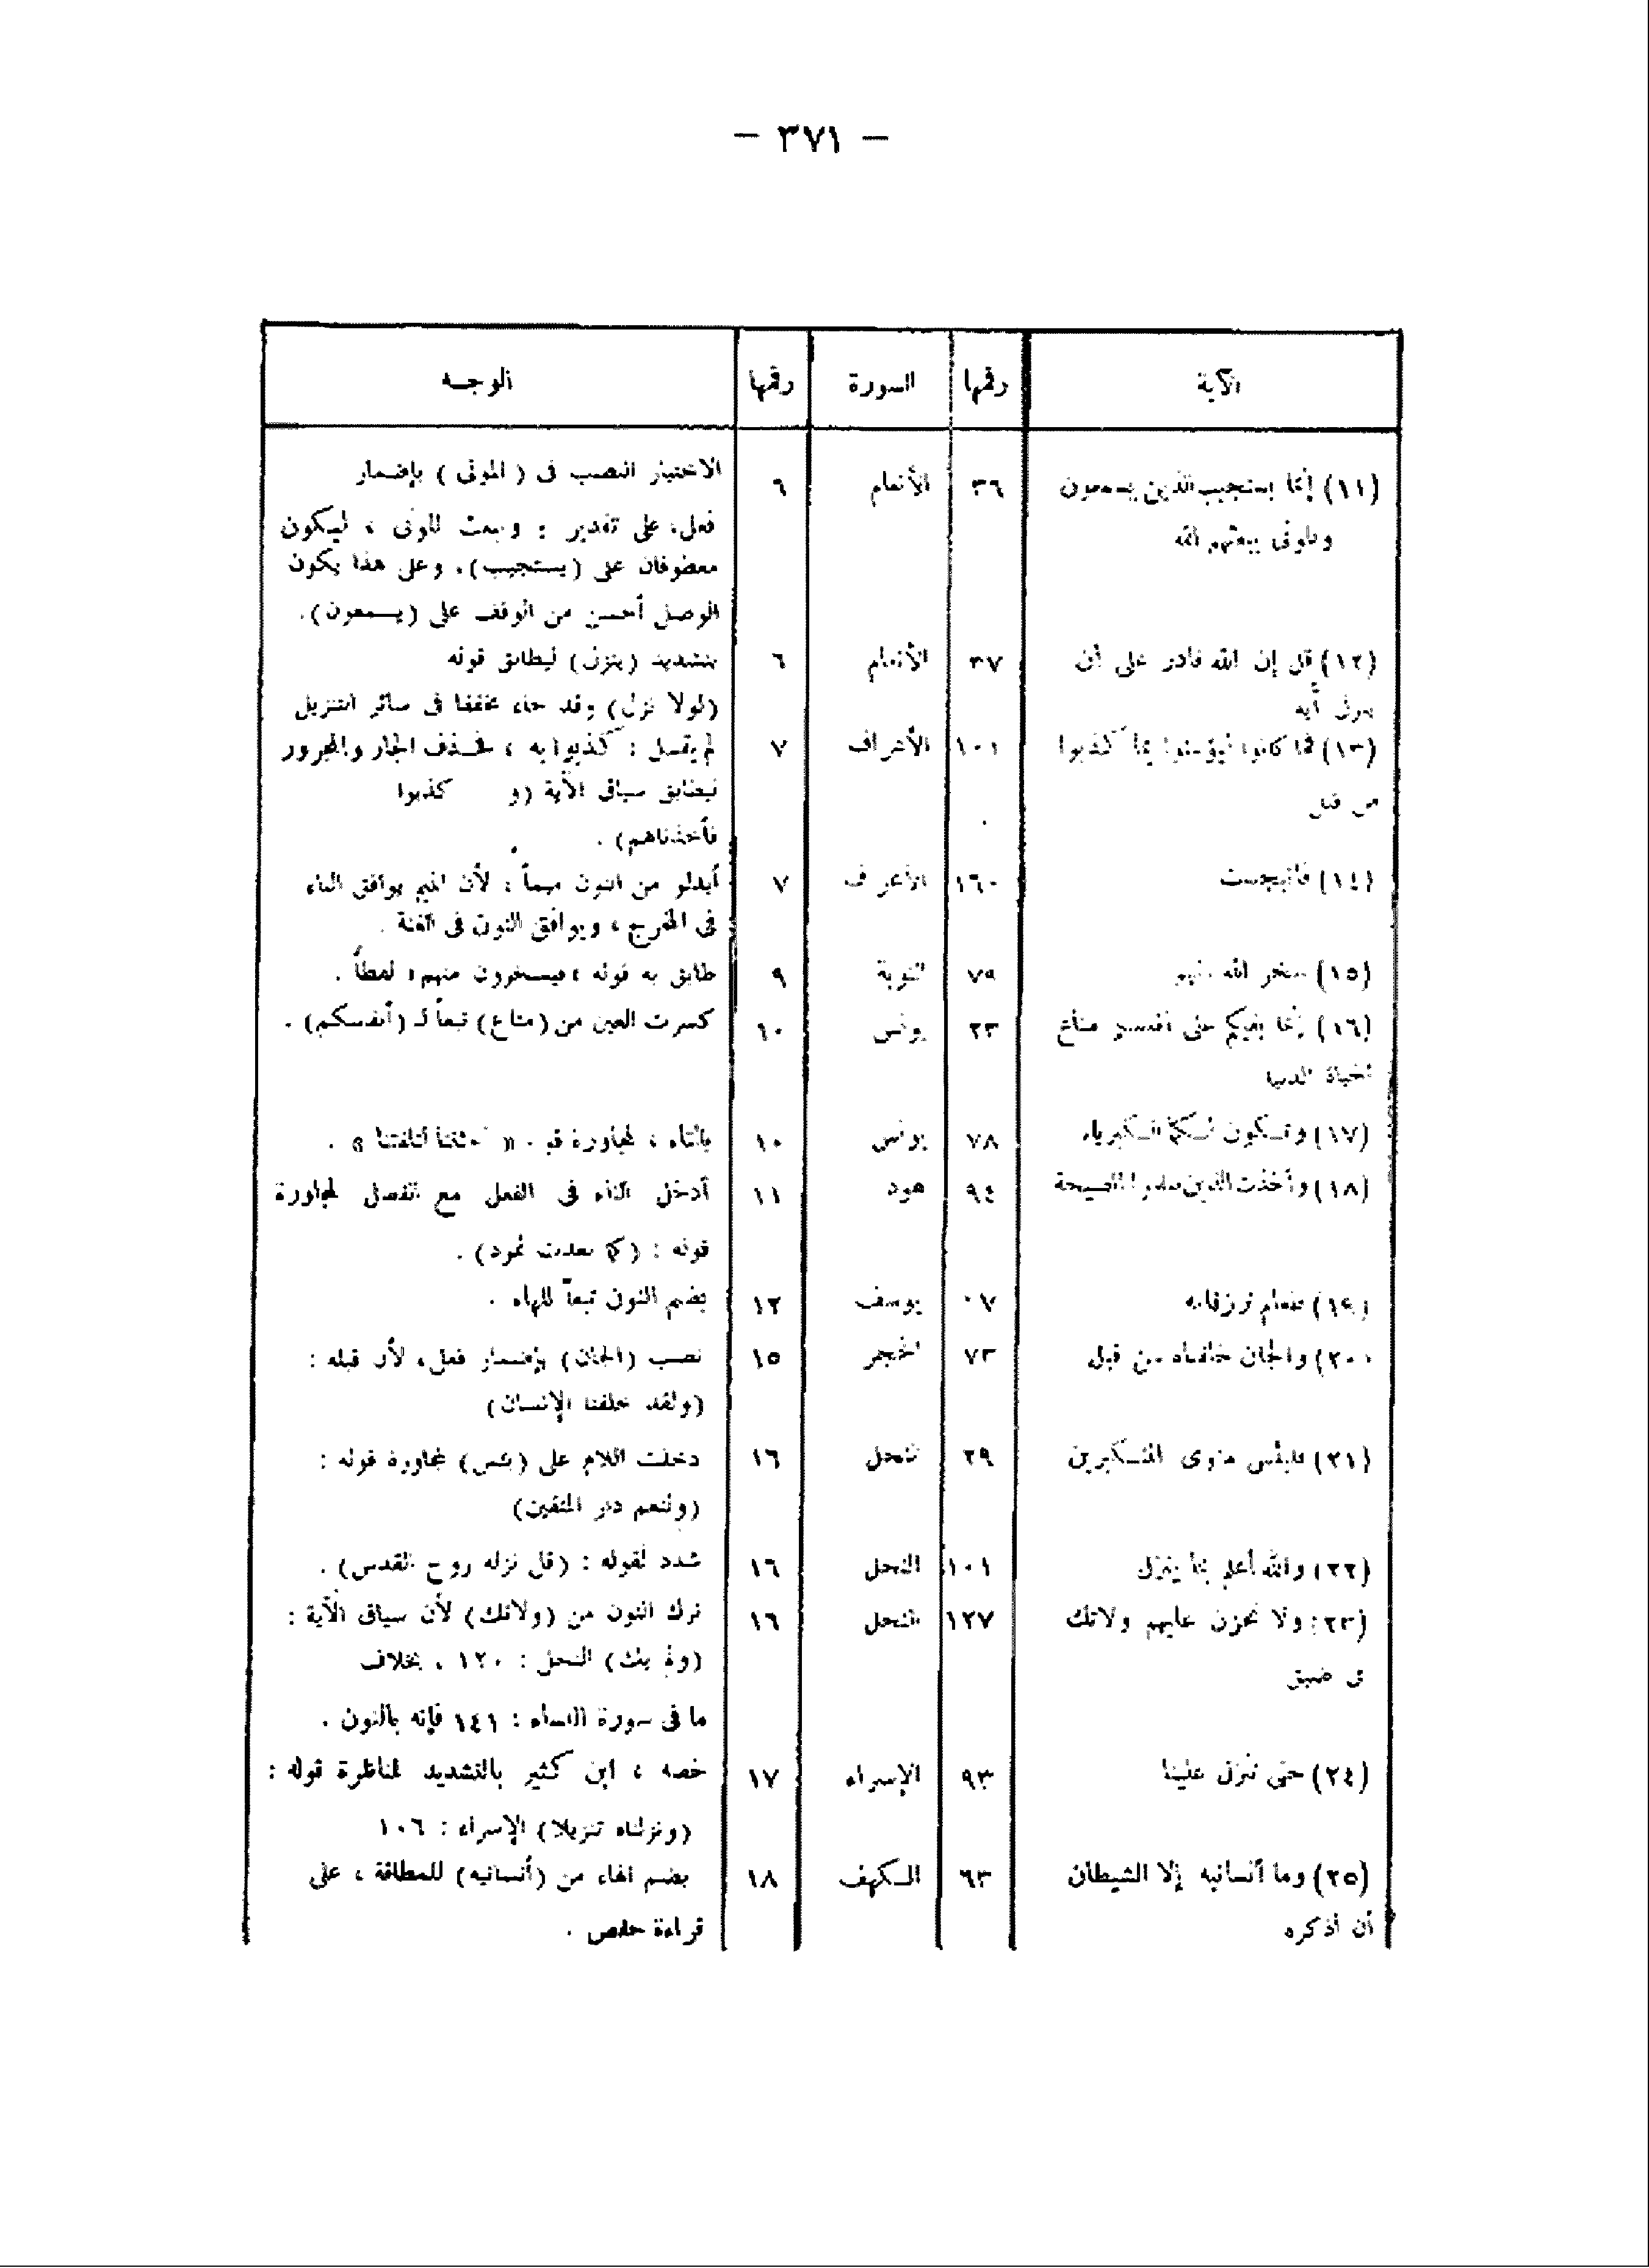 — ٣٧١ —
الآية رقمها السورة رقمها الوجـه
(١١) إنما يستجيب الذين يسمعون ٣٦ الأنعام ٦ الاختيار النصب فى ( الموتى ) بإضمار
والموتى يبعثهم الله فعل، على تقدير : ويبعث الموتى ، ليكون
معطوفان على (يستجيب). وعلى هذا يكون
الوصل أحسن من الوقف على (يسمعون).
(١٢) قل إن الله قادر على أن ٣٧ الأنعام ٦ بتشديد (ينزل) ليطابق قوله
ينزل آية (لولا نزل) وقد جاء مخففا فى سائر التنزيل
(١٣) فما كانوا ليؤمنوا بما كذبوا ١٠١ الأعراف ٧ لم يقـل : كذبوا به ، فحـذف الجار والمجرور
من قبل ليطابق سياق الآية (و كذبوا
فأخذناهم) .
(١٤) فانبجست ١٦٠ الأعراف ٧ أبدلو من النون ميماً ، لأن الميم يوافق الباء
فى المخرج ، ويوافق النون فى الغنة .
(١٥) سخر الله منهم ٧٩ التوبة ٩ طابق به قوله «فيسخرون منهم» لفظاً .
(١٦) إنما بغيكم على أنفسكم متاع ٢٣ يونس ١٠ كسرت العين من (متاع) تبعاً لـ (أنفسكم) .
الحياة الدنيا
(١٧) وتـكون لـكما الـكبرياء ٧٨ يونس ١٠ بالتاء ، لمجاورة « أجئتنا لتلفتنا » .
(١٨) وأخذت الذين ظلموا الصيحة ٩٤ هود ١١ أدخل التاء فى الفعل مع الفصل لمجاورة
قوله : (كما بعدت ثمود) .
(١٩) طعام ترزقانه ٠٧ يوسف ١٢ بضم النون تبعاً للهاء .
(٢٠) والجان خلقناه من قبل ٧٣ الحجر ١٥ نصب (الجان) بإضمار فعل، لأن قبله :
(ولقد خلقنا الإنسان)
(٢١) فلبئس مثوى المتـكبرين ٢٩ النحل ١٦ دخلت اللام على (بئس) لمجاورة قوله :
(ولنعم دار المتقين)
(٢٢) والله أعلم بما ينزل ١٠١ النحل ١٦ شدد لقوله : (قل نزله روح القدس) .
(٢٣) ولا تحزن عليهم ولاتك ١٢٧ النحل ١٦ ترك النون من (ولاتك) لأن سياق الآية :
فى ضيق (ولم يك) النحل : ١٢٠ ، بخلاف
ما فى سورة النساء : ١٤١ فإنه بالنون .
(٢٤) حتى تنزل علينا ٩٣ الإسراء ١٧ خصه ، ابن كثير بالتشديد لمناظرة قوله :
(ونزلناه تنزيلا) الإسراء : ١٠٦
(٢٥) وما أنسانيه إلا الشيطان ٦٣ الـكهف ١٨ بضم الهاء من (أنسانيه) للمطابقة ، على
أن أذكره قراءة حفص .